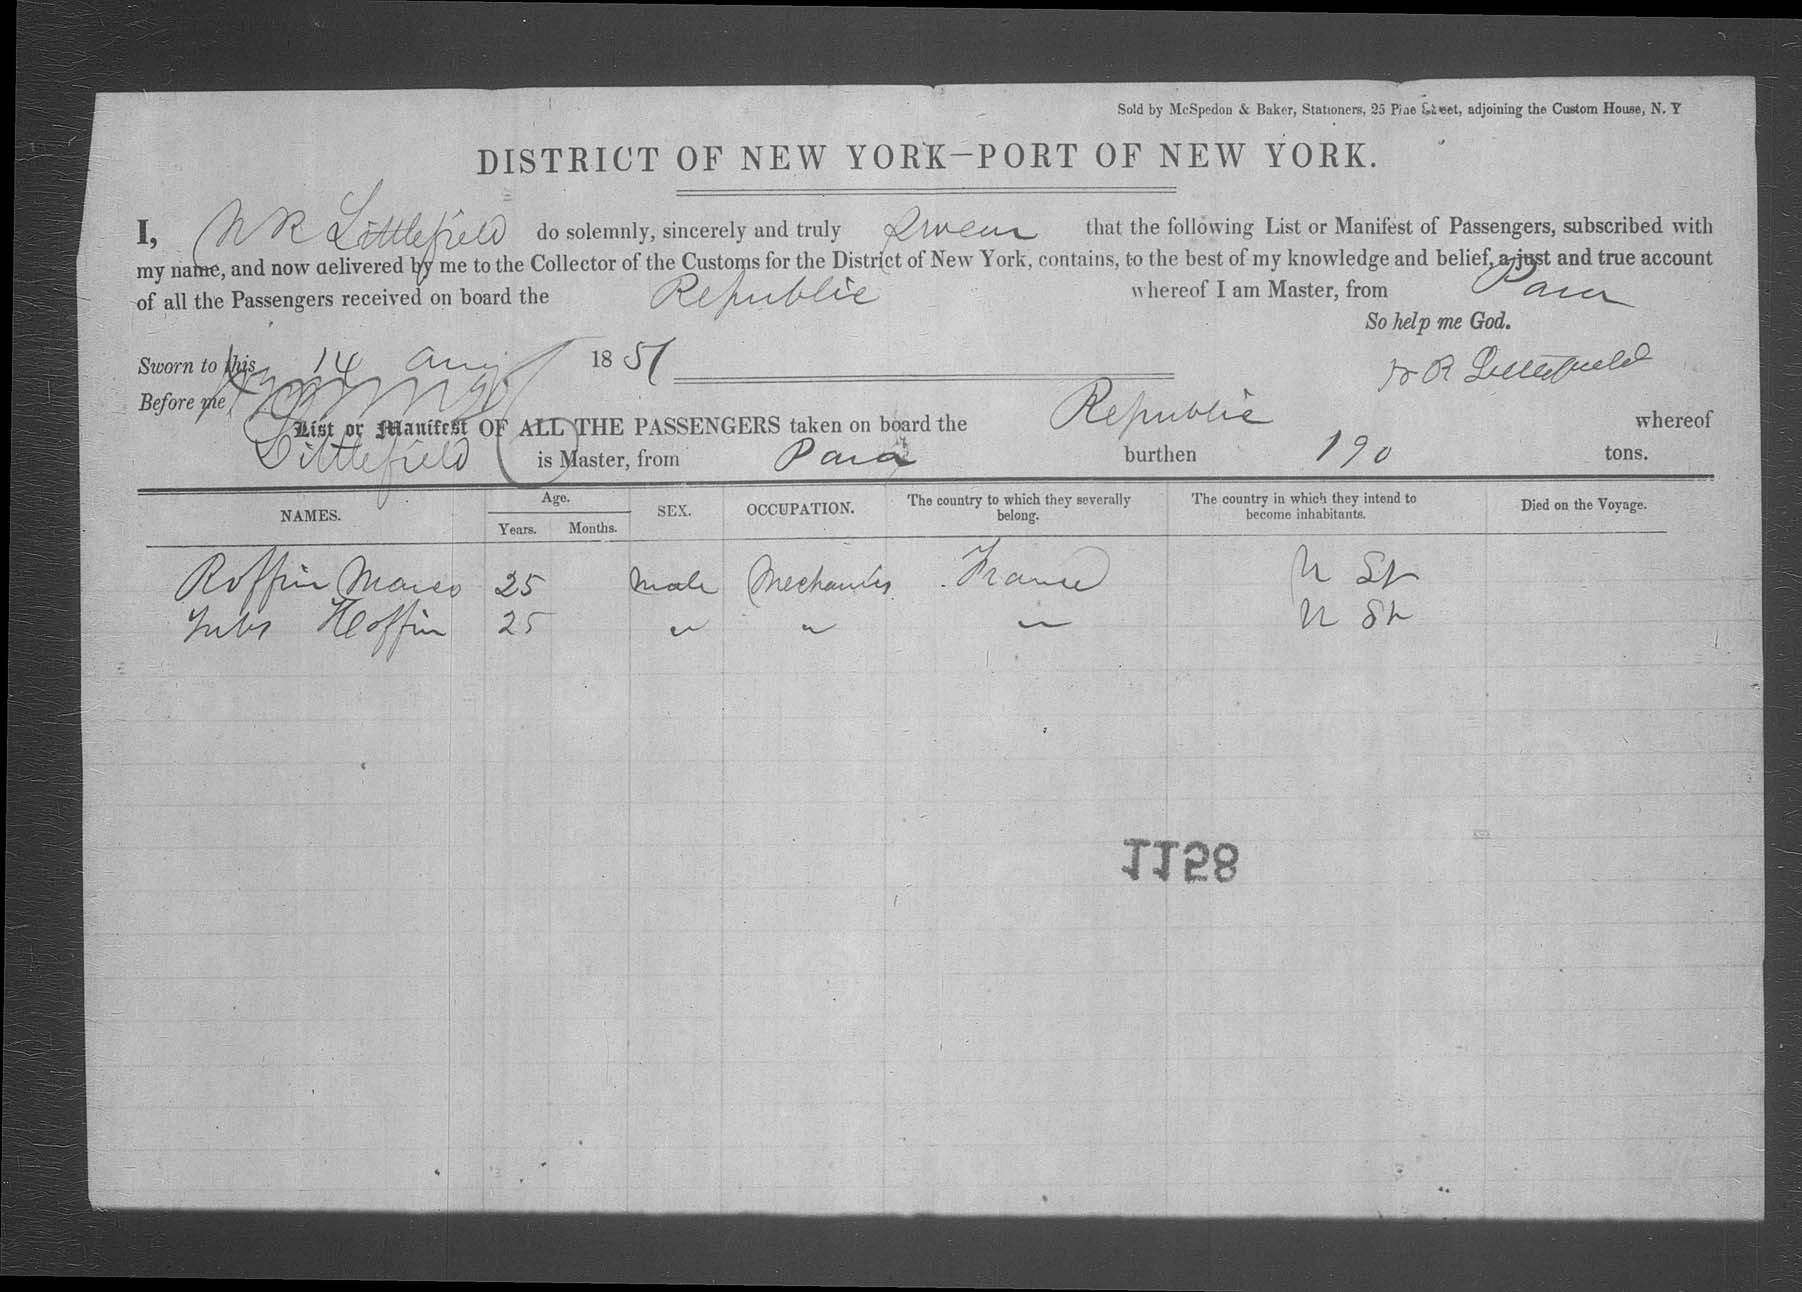 Sold by McSpedon & Baker, Stationers, 25 Pine Street, adjoining the Custom House, N. Y
DISTRICT OF NEW YORK—PORT OF NEW YORK.
I, W R Littlefield do solemnly, sincerely and truly swear that the following List or Manifest of Passengers, subscribed with
my name, and now delivered by me to the Collector of the Customs for the District of New York, contains, to the best of my knowledge and belief, a just and true account
of all the Passengers received on board the Republic whereof I am Master, from Para
So help me God.
Sworn to this 14 Aug 1851
W R Littlefield
Before me
List or Manifest OF ALL THE PASSENGERS taken on board the Republic whereof
Littlefield is Master, from Para burthen 190 tons.
NAMES. Age. Years. Months. SEX. OCCUPATION. The country to which they severally belong. The country in which they intend to become inhabitants. Died on the Voyage.
Roffin 25 male Mechanics France U St
Hoffin 25 " " " U St
1158